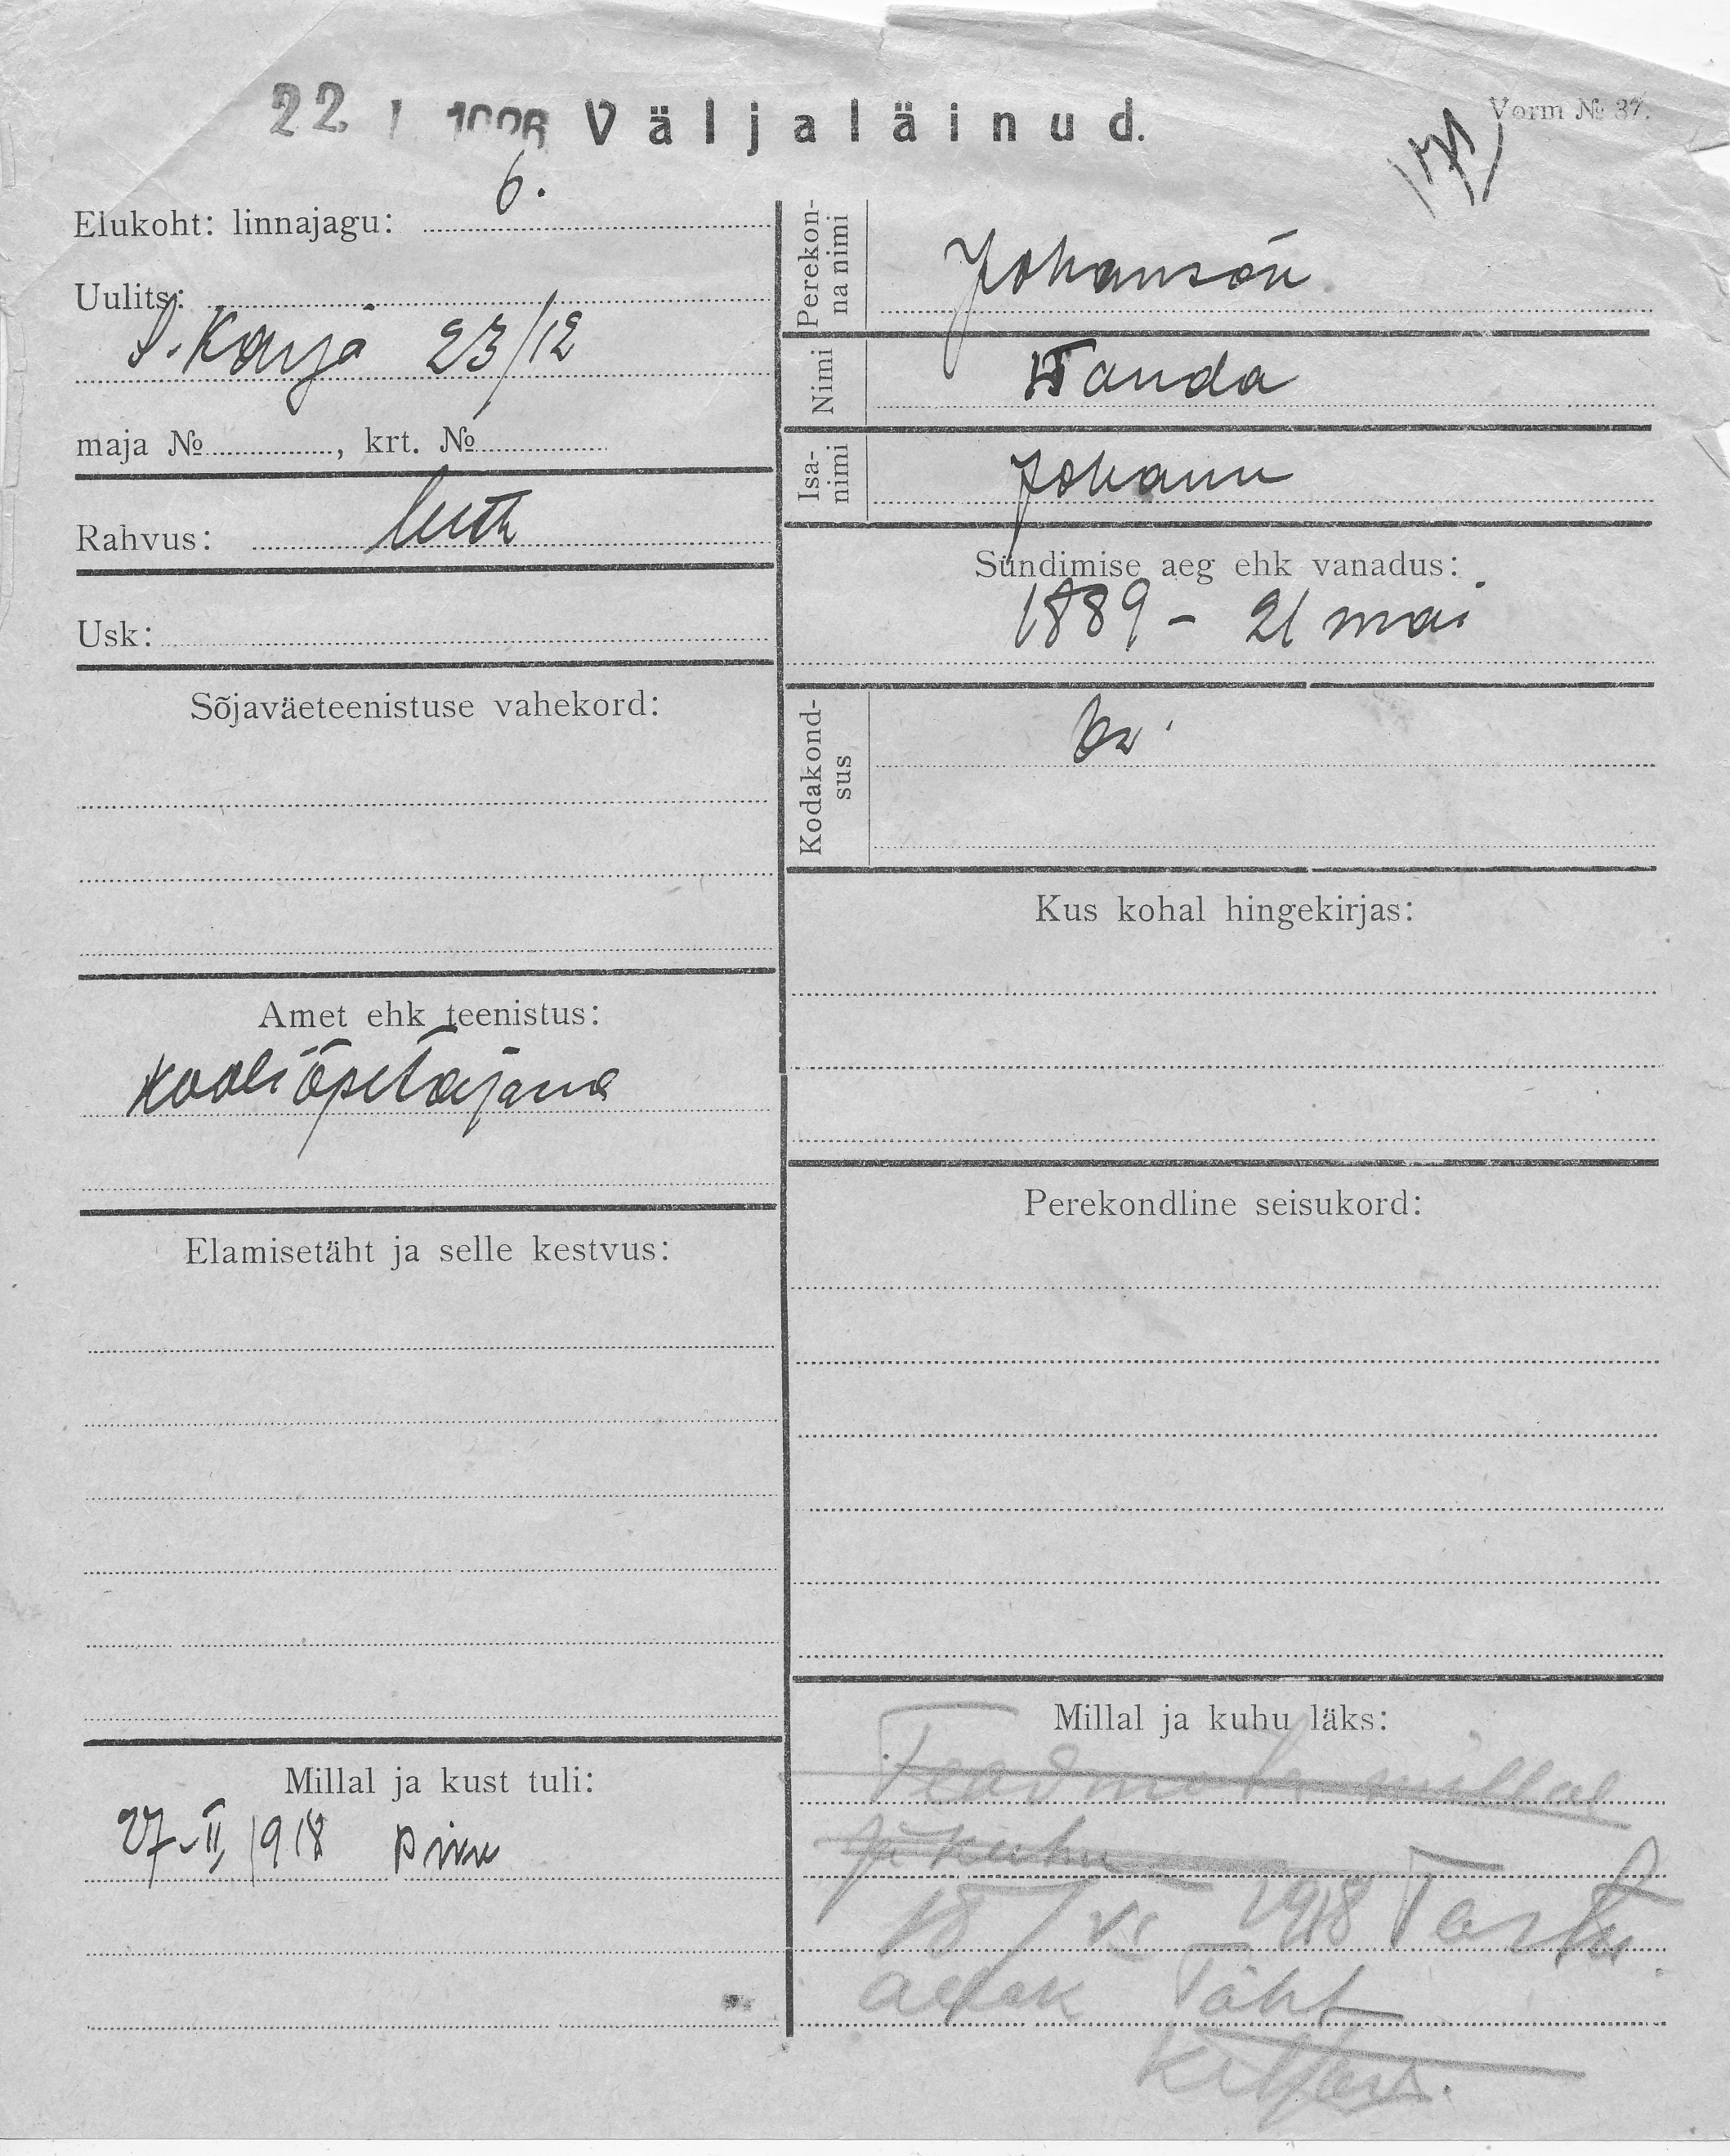 22 I 1926 Väljaläinud.
Vorm № 37.
Elukoht: linnajagu: 6.
Uulits:
S. Karja 23/12
maja № , krt. №
Rahvus:
Usk:
Sõjaväeteenistuse vahekord:
Amet ehk teenistus:
kooliõpetajana
Elamisetäht ja selle kestvus:
Millal ja kust tuli:
27-II, 1918
Perekon-
na nimi
Johanson
Nimi
Wanda
Isa-
nimi
Johann
Sündimise aeg ehk vanadus:
1889 - 21 mai
Kodakond-
sus
Kus kohal hingekirjas:
Perekondline seisukord:
Millal ja kuhu läks:
Teadmata millal
ja kuhu
18/XI - 1918 Tartu
Täht